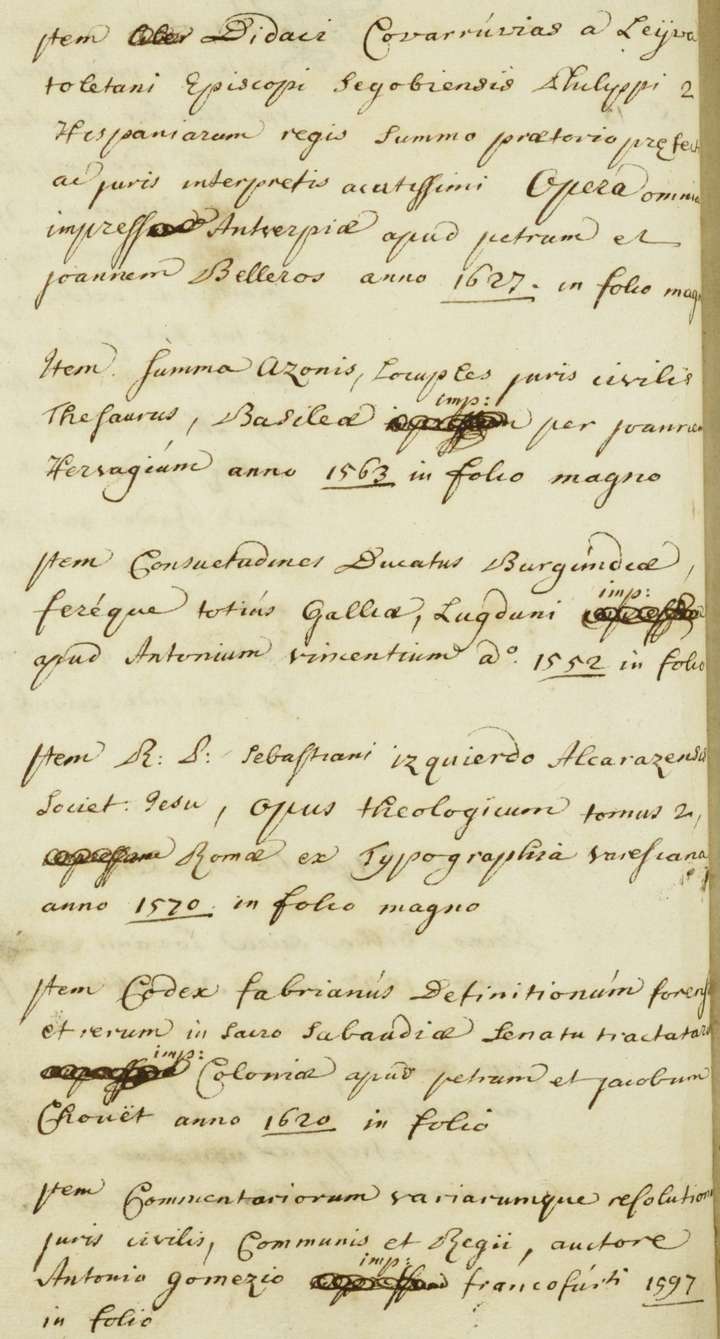 Item Didaci Covarrúvias a Leÿva
toletani Episcopi Segobiensis Philippi 2
Hispaniarum regis Summo prætorio præfect
ac juris interpretis acutissimi Opera omnia
impress Antverpiæ apud petrum et
joannem Belleros anno 1627. in folio magn
Item. Summa Azonis, Locuples juris civilis
Thesaurus, Basileæ imp: per joannem
Hervagiúm anno 1563 in folio magno
Item Consuetudines Ducatus Burgúndiæ,
feréque totiús Galliæ, Lugduni imp:
apud Antonium vincentium a°. 1552 in folio
Item R: P: Sebastiani izquierdo Alcarazensis
Societ: Jesu, opus theologicum tomus 2,
Romæ ex Typographia varesiana
anno 1570. in folio magno
Item Codex fabrianús Definitionúm forens
et rerum in Sacro Sabaudiæ Senatu tractatar
imp: Coloniæ apud petrum et jacobum
Chouët anno 1620 in folio
Item Commentariorum variarumque resolution
juris civilis, Communis et Regii, auctore
Antonio gómezio imp: francofúrti 1597
in folio